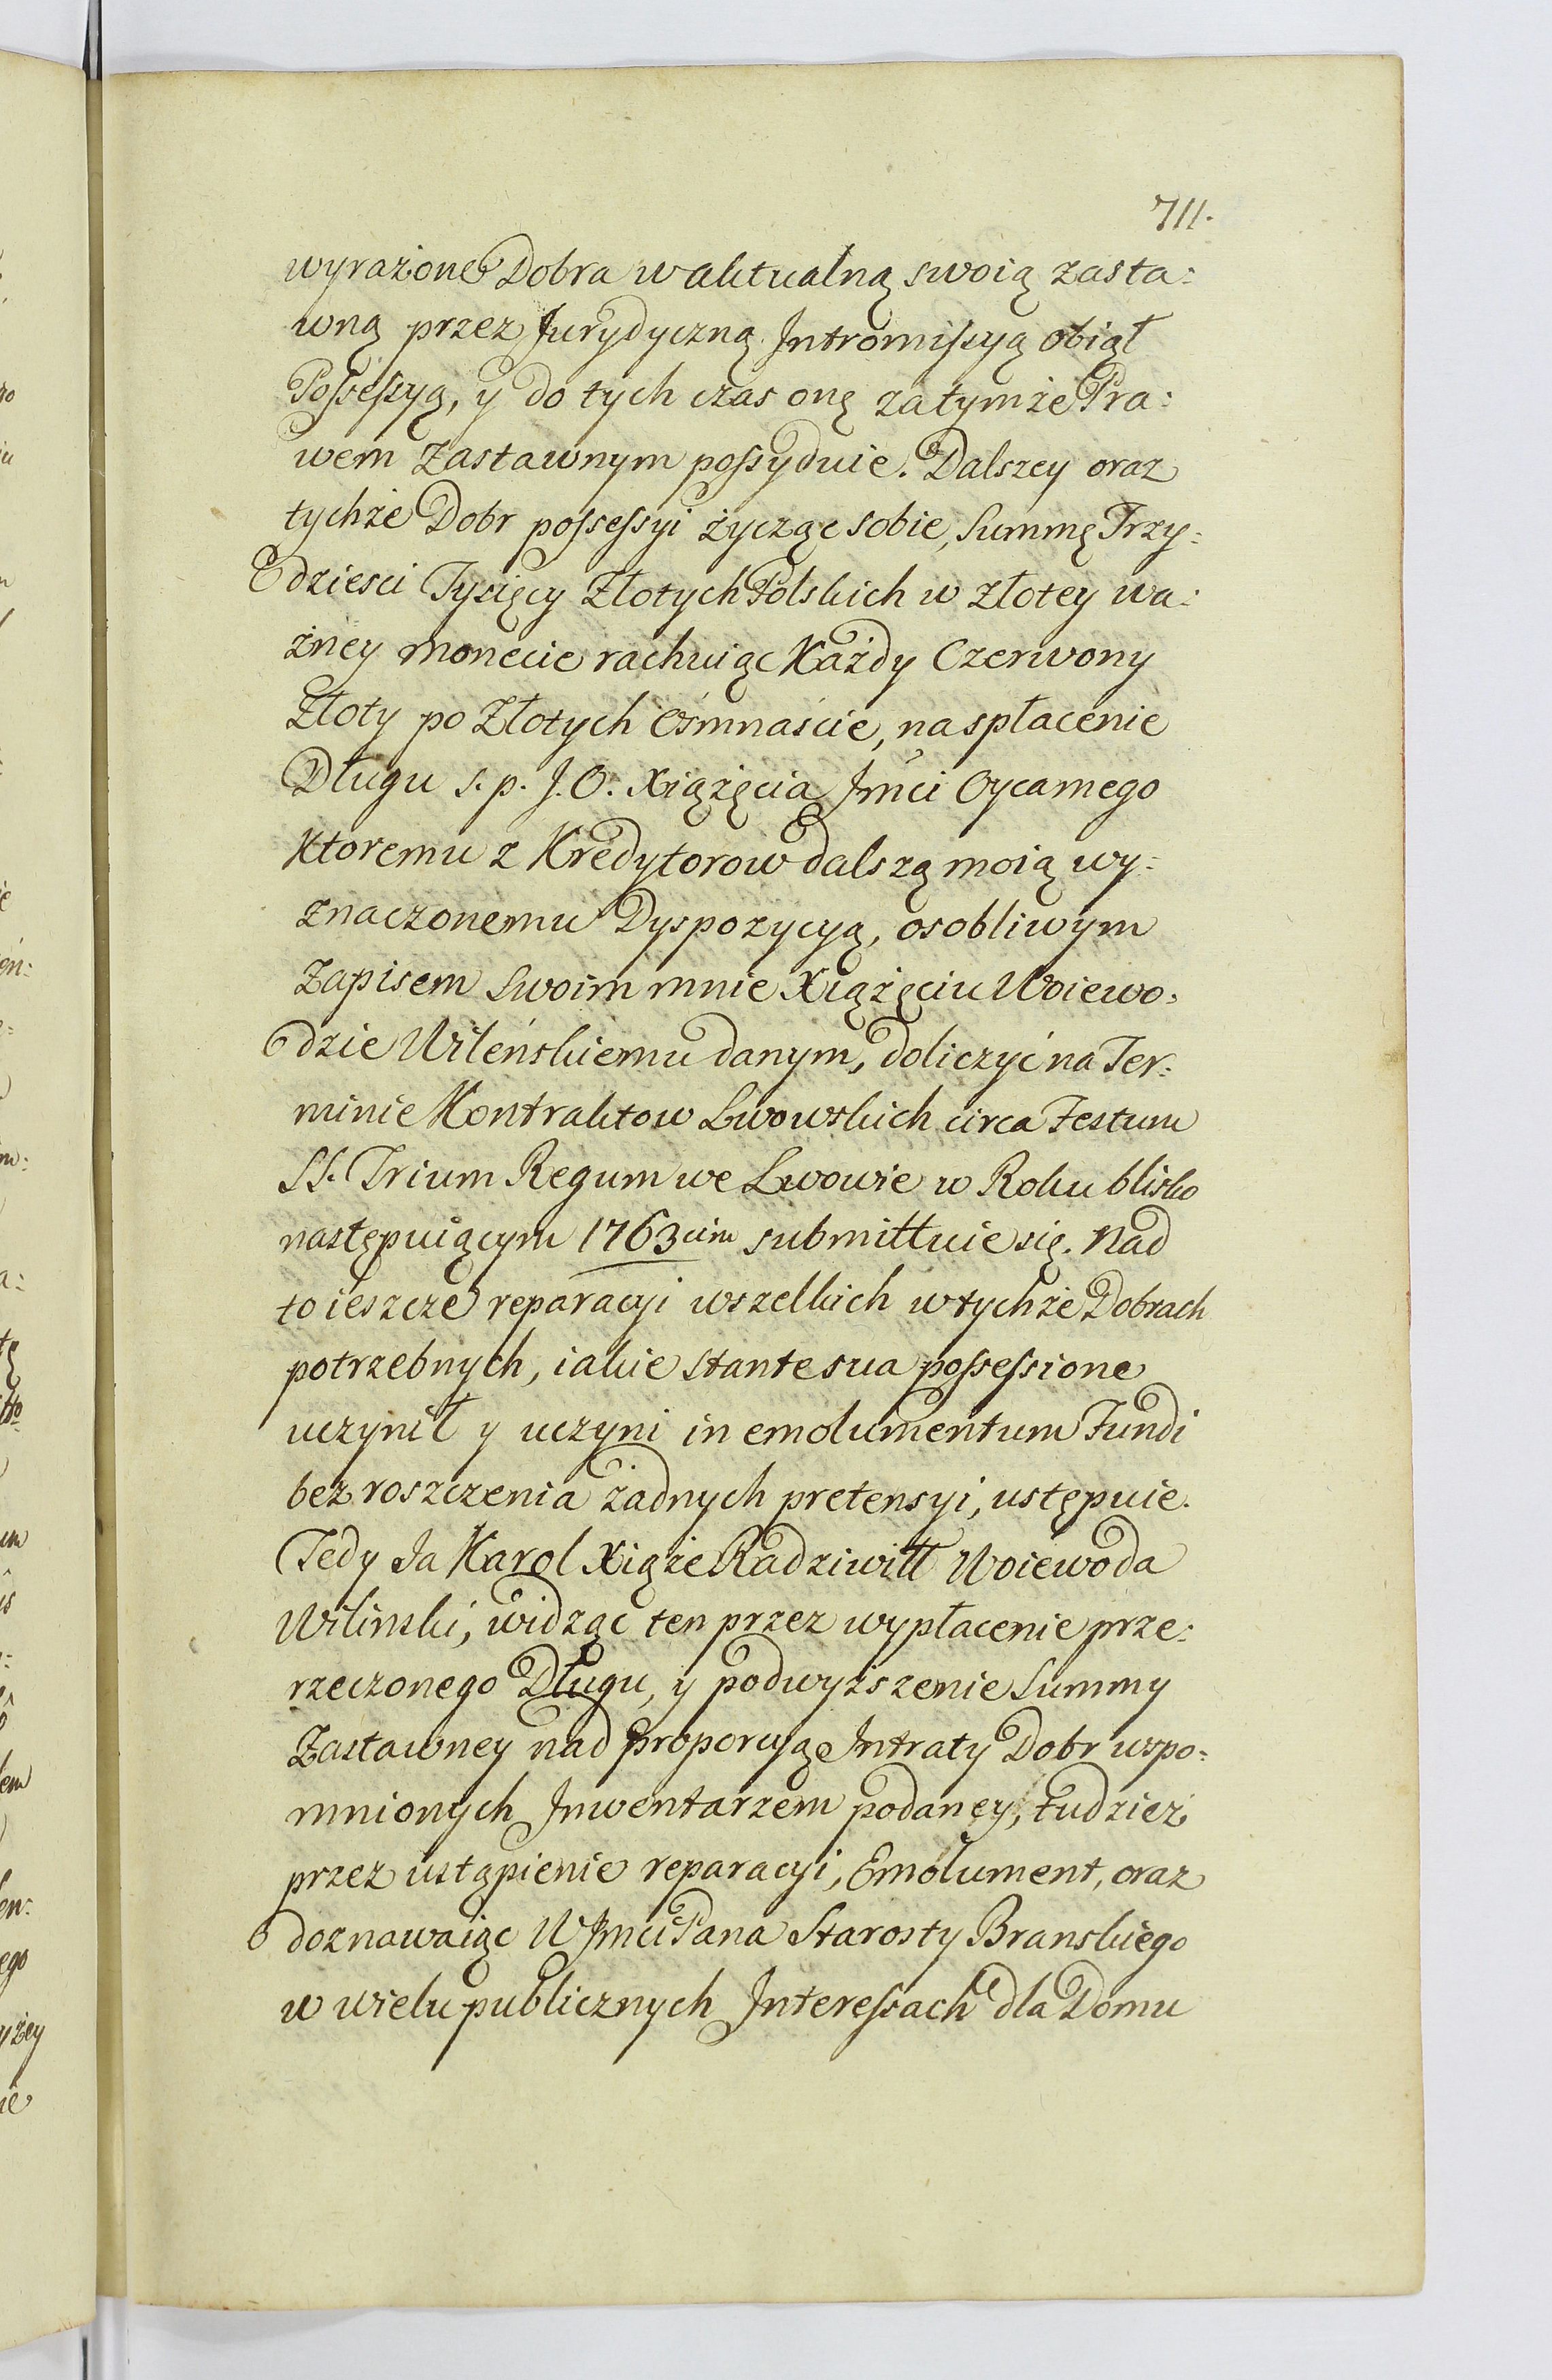 711.
wyrażone Dobra w aktualną swoią zasta:
wną przez Jurydyczną Intromissyą obiął
Possessyą, y do tych czas onę za tymże Pra:
wem Zastawnym possyduie. Dalszey oraz
tychże Dobr possessyi życząc sobie, Summę Trzy:
dziesci Tysięcy Złotych Polskich w złotey wa:
żney monecie rachuiąc Każdy Czerwony
Złoty po Złotych Ośmnaście, na spłacenie
Długu s. p. J. O. Xiążęcia Jmci Oycamego
Ktoremu z Kredytorow dalszą moią wy:
znaczonemu Dyspozycyą, osobliwym
Zapisem Swoim mnie Xiążęciu Woiewo:
dzie Wileńskiemu danym, doliczyć na Ter:
minie Kontraktow Lwowskich circa Festum
SS. Trium Regum we Lwowie w Roku blisko
następuiącym 1763cim submittuie się. Nad
to ieszcze reparacyi wszelkich w tychże Dobrach
potrzebnych, iakie stante sua possessione
uczynił y uczyni in emolumentum Fundi
bez roszczenia żadnych pretensyi, ustępuie.
Tedy Ja Karol Xiąże Radziwiłł Woiewoda
Wilinski, widząc ten przez wypłacenie prze:
rzeczonego Długu, y podwyższenie Summy
Zastawney nad proporcyą Intraty Dobr wspo:
mnionych Inwentarzem podaney, tudzież
przez ustąpienie reparacyi, Emolument, oraz
doznawaiąc W Jmci Pana Starosty Branskiego
w wielu publicznych Interessach dla Domu